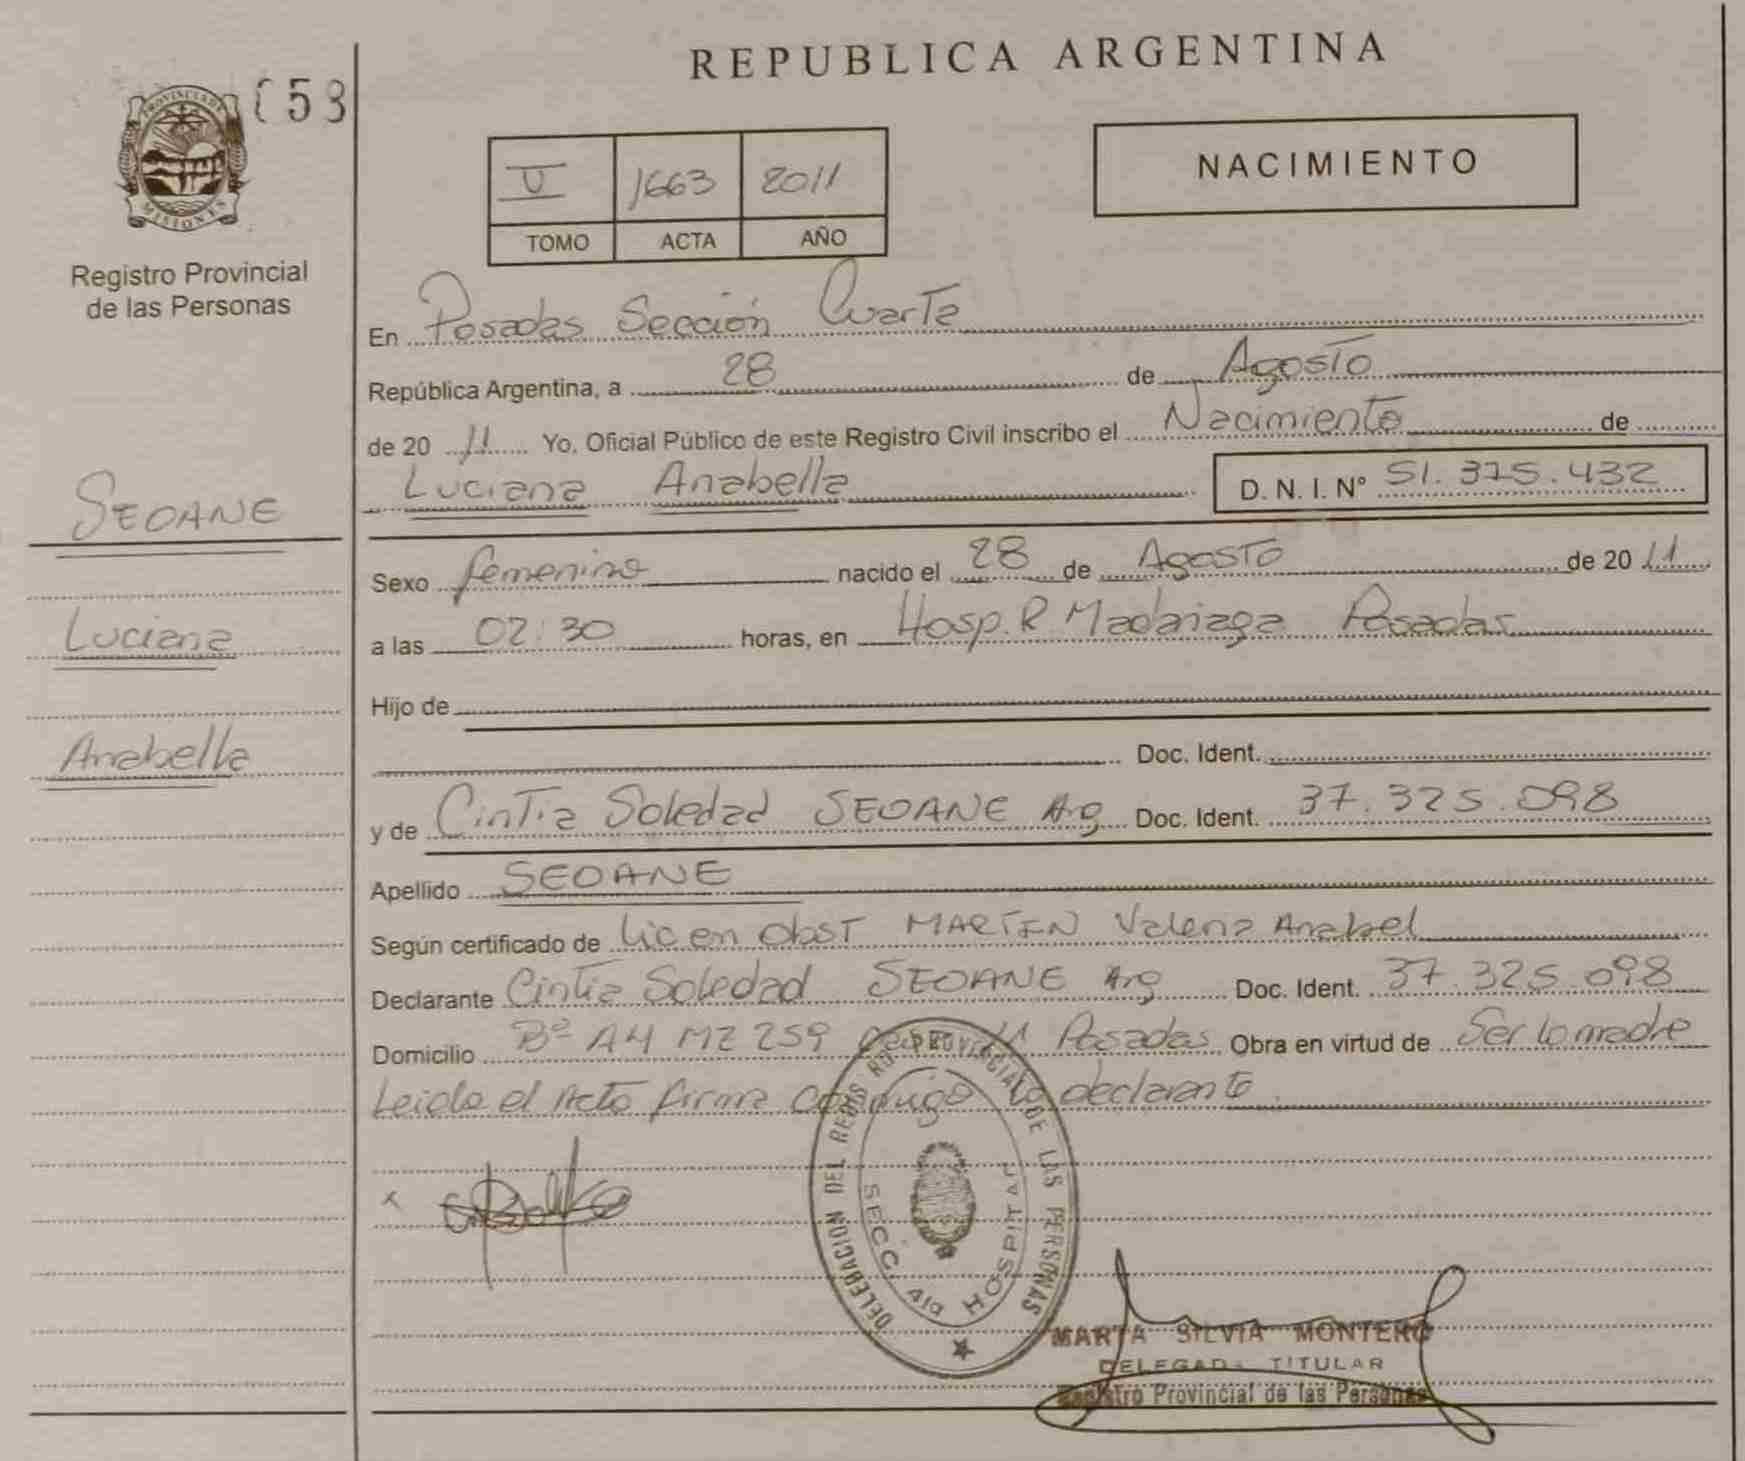 REPUBLICA ARGENTINA
PROVINCIA DE
MISIONES
Registro Provincial
de las Personas
V 1663 2011
TOMO ACTA AÑO
NACIMIENTO
En Posadas Sección Cuarta
República Argentina, a 28 de Agosto
de 20 11 Yo, Oficial Público de este Registro Civil inscribo el Nacimiento de
Luciana Anabella D. N. I. Nº 51.375.432
SEOANE
Luciana
Anabella
Sexo femenino nacido el 28 de Agosto de 20 11
a las 02:30 horas, en Hosp. R Madariaga Posadas
Hijo de
Doc. Ident.
y de Cintia Soledad SEOANE Arg Doc. Ident. 37.325.098
Apellido SEOANE
Según certificado de Lic en Obst MARTIN Valeria Anabel
Declarante Cintia Soledad SEOANE Arg Doc. Ident. 37.325.098
Domicilio Bº A4 MZ 259 Posadas Obra en virtud de Ser la madre
Leida el Acta firma conmigo la declarante
DELEGACION DEL REGIS PROVINCIAL DE LAS PERSONAS
SECC. 4ta HOSPITAL
MARTA SILVIA MONTERO
DELEGADA TITULAR
Registro Provincial de las Personas